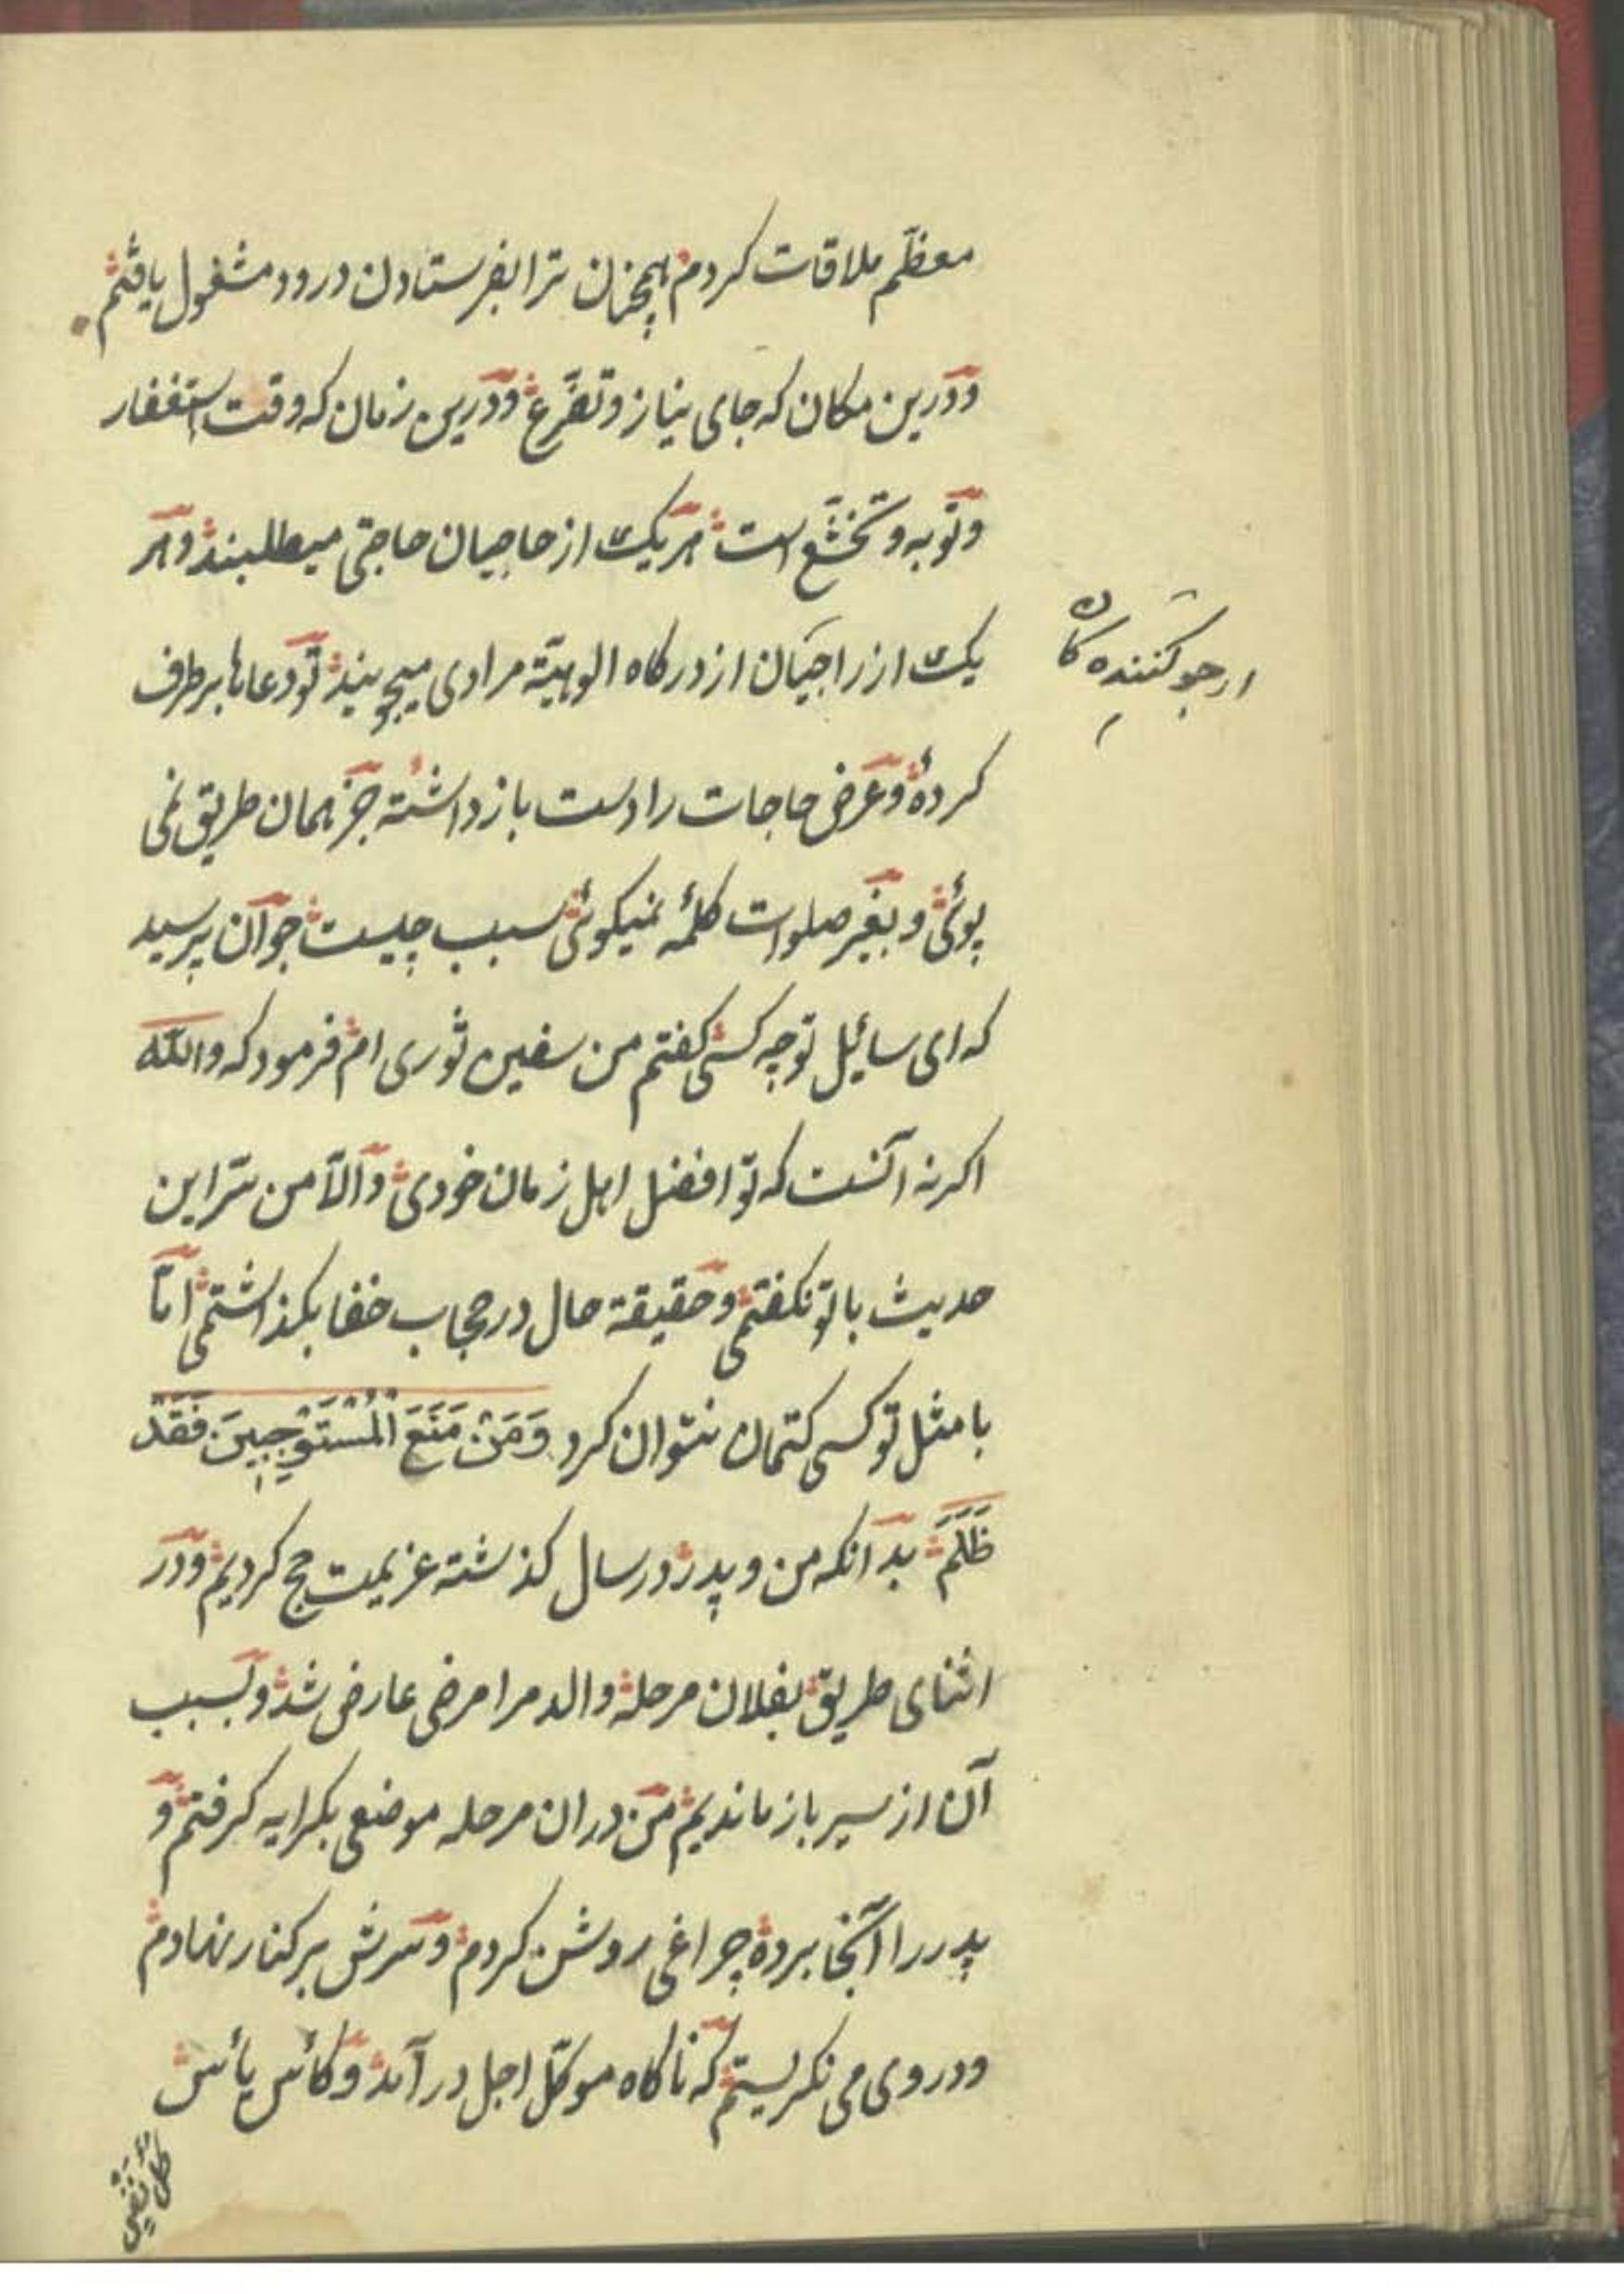 معظّم ملاقات کردم همچنان ترا بفرستادن درود مشغول یافتم
ودرین مکان که جای نیاز وتضرّع ودرین زمان که وقت استغفار
وتوبه وتخشّع است هر یک از حاجیان حاجتی میطلبند وهر
یک از راجیان از درکاه الوهیّة مرادی میجویند تو دعاها برطرف
کردهٔ وعرض حاجات را دست باز داشته جز همان طریق نمی
پوئی وبغیر صلوات کلمهٔ نمیکوئی سبب چیست جوان پرسید
که ای سائیل تو چه کسی کفتم من سفین ثوری ام فرمود که والله
اکر نه آنست که تو افضل اهل زمان خودی والّا من سرّ این
حدیث با تو نکفتمی وحقیقة حال در حجاب خفا بکذاشتمی امّا
با مثل تو کسی کتمان نتوان کرد وَمَنْ مَنَعَ الْمُسْتَوْجِبِینَ فَقَدْ
ظَلَمَ بدانکه من وپدر در سال کذشته عزیمت حج کردیم ودر
اثنای طریق بفلان مرحله والد مرا مرضی عارض شد وبسبب
آن از سیر باز ماندیم من دران مرحله موضعی بکرایه کرفتم و
پدر را آنجا برده چراغی روشن کردم وسرش بر کنار نهادم
ودر وی می نکریستم که ناکاه موکّل اجل در آمد وکأس یأس
کلّ نفس
ارجو کننده کان